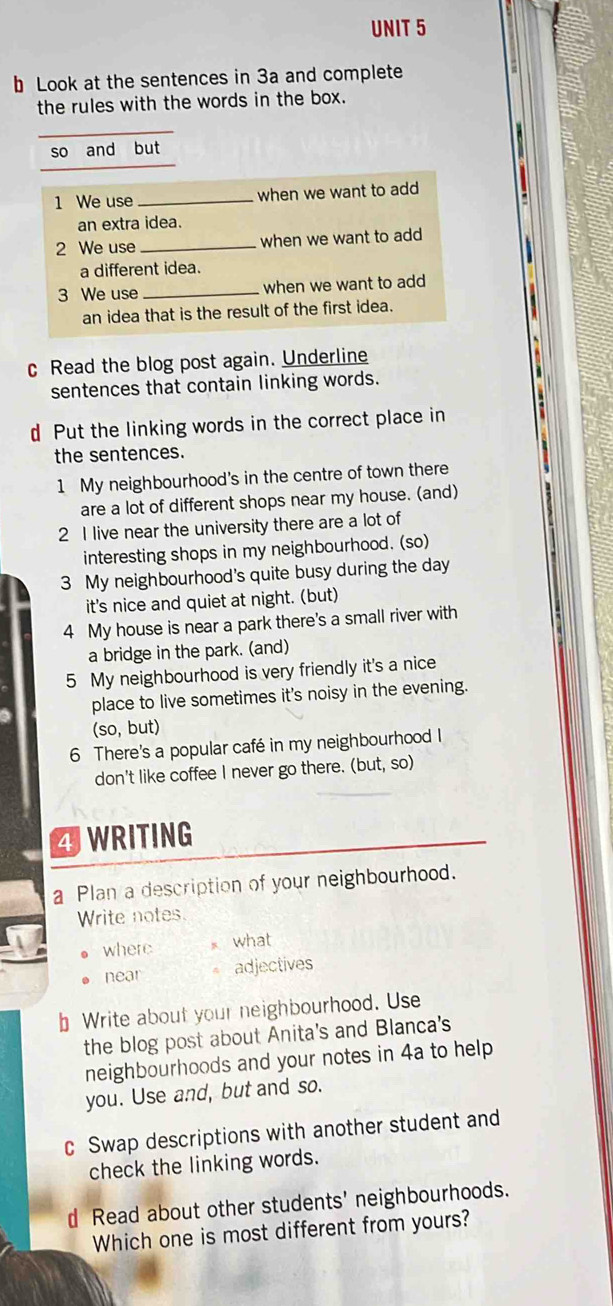 UNIT 5
b Look at the sentences in 3a and complete
the rules with the words in the box.
so and but
1 We use ____________ when we want to add
an extra idea.
2 We use ____________ when we want to add
a different idea.
3 We use ____________ when we want to add
an idea that is the result of the first idea.
c Read the blog post again. Underline
sentences that contain linking words.
d Put the linking words in the correct place in
the sentences.
1 My neighbourhood's in the centre of town there
are a lot of different shops near my house. (and)
2 I live near the university there are a lot of
interesting shops in my neighbourhood. (so)
3 My neighbourhood's quite busy during the day
it's nice and quiet at night. (but)
4 My house is near a park there's a small river with
a bridge in the park. (and)
5 My neighbourhood is very friendly it's a nice
place to live sometimes it's noisy in the evening.
(so, but)
6 There's a popular café in my neighbourhood I
don't like coffee I never go there. (but, so)
4 WRITING
a Plan a description of your neighbourhood.
Write notes.
• where • what
• near • adjectives
b Write about your neighbourhood. Use
the blog post about Anita's and Blanca's
neighbourhoods and your notes in 4a to help
you. Use and, but and so.
c Swap descriptions with another student and
check the linking words.
d Read about other students' neighbourhoods.
Which one is most different from yours?